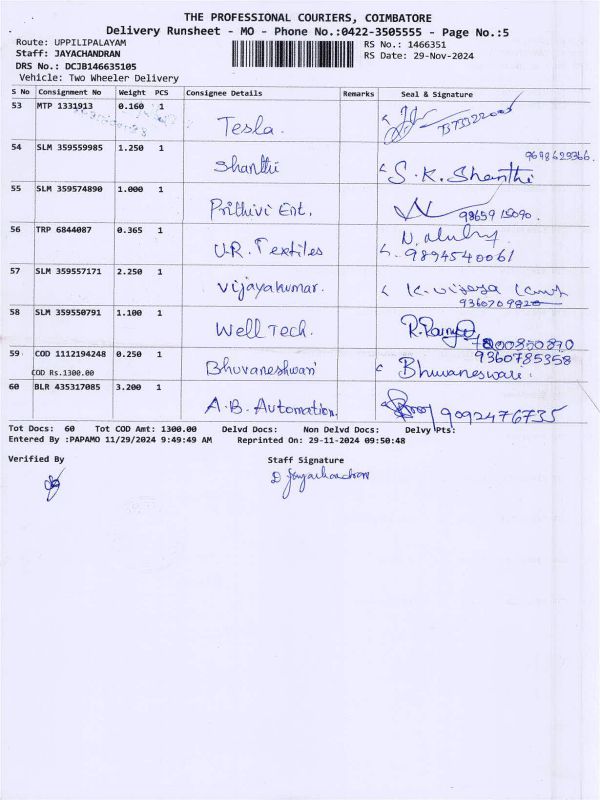 THE PROFESSIONAL COURIERS, COIMBATORE
Delivery Runsheet - MO - Phone No.:0422-3505555 - Page No.:5
Route: UPPILIPALAYAM RS No.: 1466351
Staff: JAYACHANDRAN RS Date: 29-Nov-2024
DRS No.: DCJB146635105
Vehicle: Two Wheeler Delivery
S No Consignment No Weight PCS Consignee Details Remarks Seal & Signature
53 MTP 1331913 0.160 1 Tesla.
54 SLM 359559985 1.250 1 Shanthi S.K. Shanthi
55 SLM 359574890 1.000 1 Prithivi Ent. 98659 15090.
56 TRP 6844087 0.365 1 U.R. Textiles 9894540061
57 SLM 359557171 2.250 1 Vijayakumar. K. Vijaya
58 SLM 359550791 1.100 1 Well Tech.
9360785358
59 COD 1112194248 0.250 1 Bhuvaneshwari Bhuvaneswari.
COD Rs.1300.00
60 BLR 435317085 3.200 1 A.B. Automation. 9092476735
Tot Docs: 60 Tot COD Amt: 1300.00 Delvd Docs: Non Delvd Docs: Delvy Pts:
Entered By :PAPAMO 11/29/2024 9:49:49 AM Reprinted On: 29-11-2024 09:50:48
Verified By Staff Signature
D Jayachandran